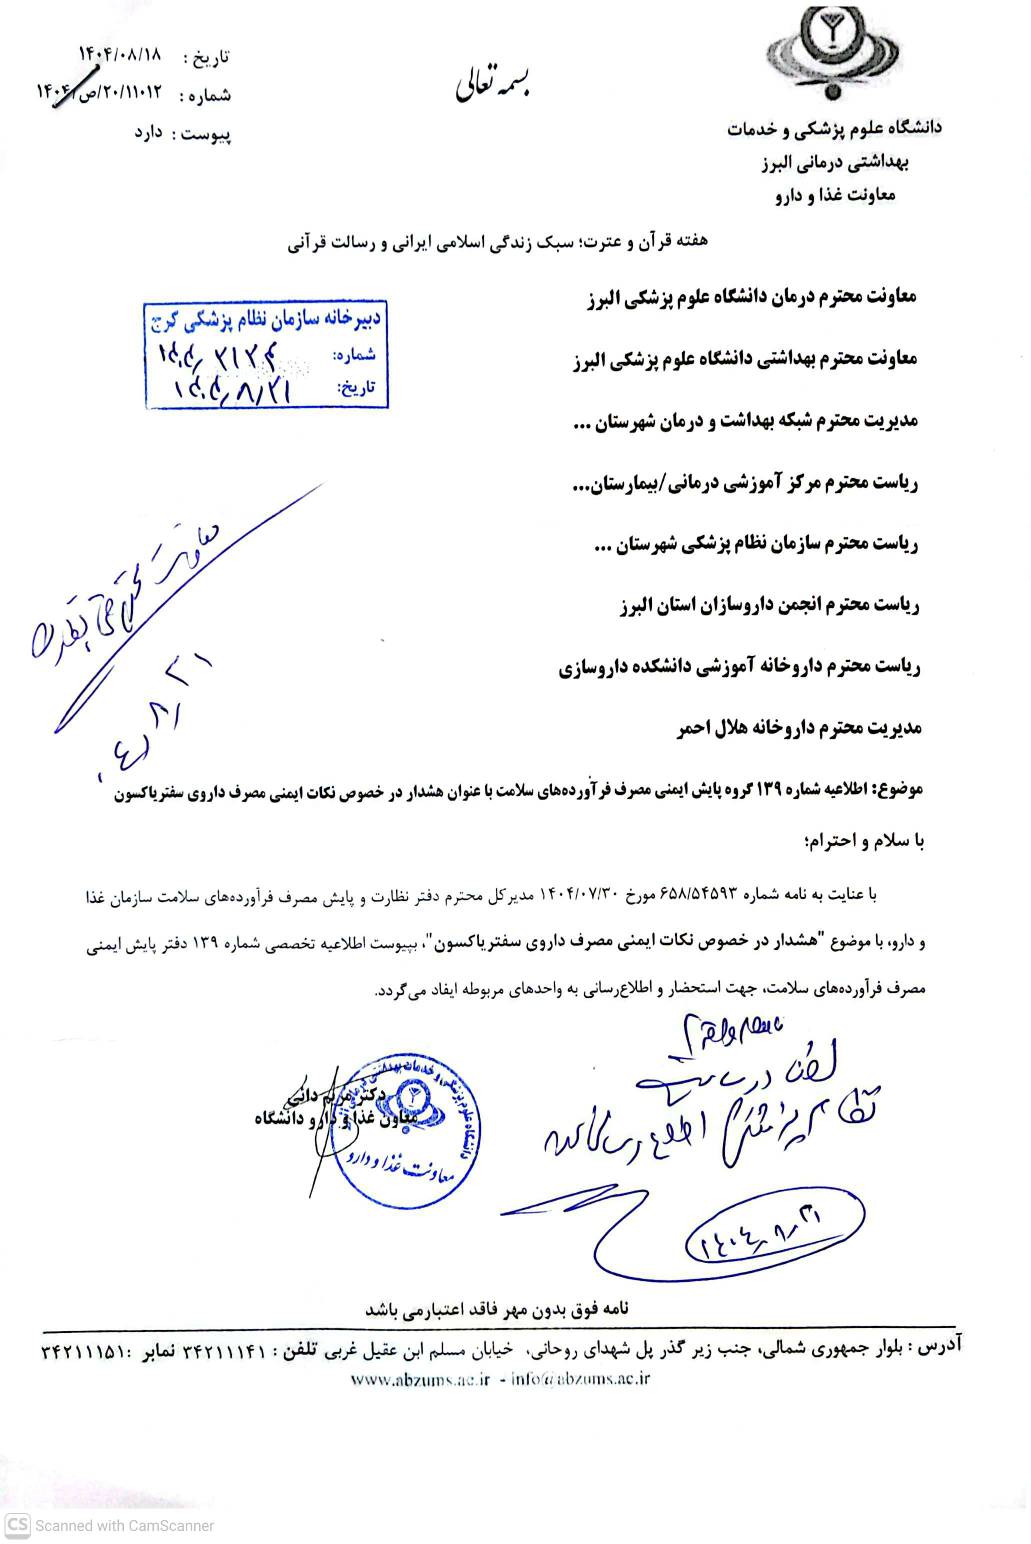 تاریخ : ۱۴۰۴/۰۸/۱۸
شماره : ۱۴۰۴/ص/۲۰/۱۱۰۱۲
پیوست : دارد
بسمه تعالی
دانشگاه علوم پزشکی و خدمات
بهداشتی درمانی البرز
معاونت غذا و دارو
هفته قرآن و عترت؛ سبک زندگی اسلامی ایرانی و رسالت قرآنی
دبیرخانه سازمان نظام پزشکی کرج
شماره:
تاریخ: ۱۴۰۴/۸/۲۱
معاونت محترم درمان دانشگاه علوم پزشکی البرز
معاونت محترم بهداشتی دانشگاه علوم پزشکی البرز
مدیریت محترم شبکه بهداشت و درمان شهرستان ...
ریاست محترم مرکز آموزشی درمانی/بیمارستان...
ریاست محترم سازمان نظام پزشکی شهرستان ...
ریاست محترم انجمن داروسازان استان البرز
ریاست محترم داروخانه آموزشی دانشکده داروسازی
مدیریت محترم داروخانه هلال احمر
معاونت محترم فنی
۰۴/۸/۲۱
موضوع: اطلاعیه شماره ۱۳۹ گروه پایش ایمنی مصرف فرآورده‌های سلامت با عنوان هشدار در خصوص نکات ایمنی مصرف داروی سفتریاکسون
با سلام و احترام؛
با عنایت به نامه شماره ۶۵۸/۵۴۵۹۳ مورخ ۱۴۰۴/۰۷/۳۰ مدیرکل محترم دفتر نظارت و پایش مصرف فرآورده‌های سلامت سازمان غذا
و دارو، با موضوع "هشدار در خصوص نکات ایمنی مصرف داروی سفتریاکسون"، بپیوست اطلاعیه تخصصی شماره ۱۳۹ دفتر پایش ایمنی
مصرف فرآورده‌های سلامت، جهت استحضار و اطلاع‌رسانی به واحدهای مربوطه ایفاد می‌گردد.
لطفا در سایت
نظام پزشکی اطلاع رسانی
۱۴۰۴/۸/۲۱
دکتر مریم دانی
معاون غذا و دارو دانشگاه
معاونت غذا و دارو
نامه فوق بدون مهر فاقد اعتبارمی باشد
آدرس : بلوار جمهوری شمالی، جنب زیر گذر پل شهدای روحانی، خیابان مسلم ابن عقیل غربی تلفن : ۳۴۲۱۱۱۴۱ نمابر :۳۴۲۱۱۱۵۱
www.abzums.ac.ir - info@abzums.ac.ir
CS Scanned with CamScanner